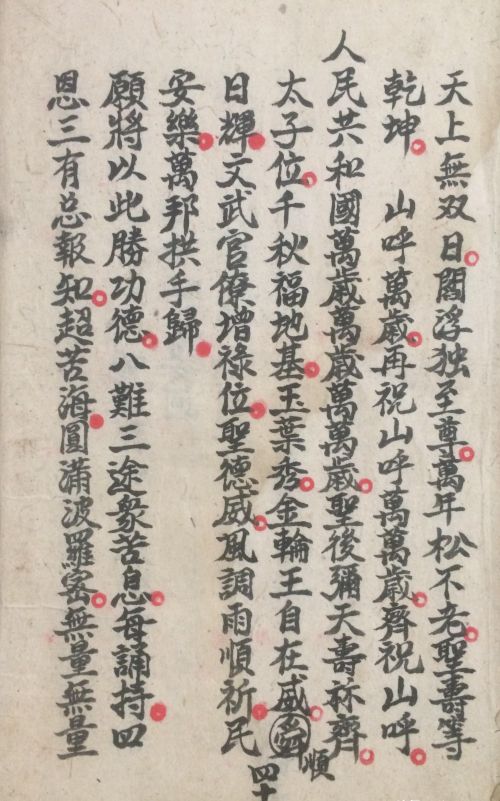 天上無双日閻浮独至尊萬年松不老聖壽等
乾坤 山呼萬歲再祝山呼萬萬歲齊祝山呼
人民共和國萬歲萬歲萬萬歲聖後彌天壽齊
太子位千秋福地基玉葉秀金輪王自在威
日輝文武官僚增祿位聖德威風調雨順祈民
安樂萬邦拱手歸
願將以此勝功德八難三途衆苦息每誦持四
恩三有总報知超苦海圓滿波羅密無量無量
順
四十